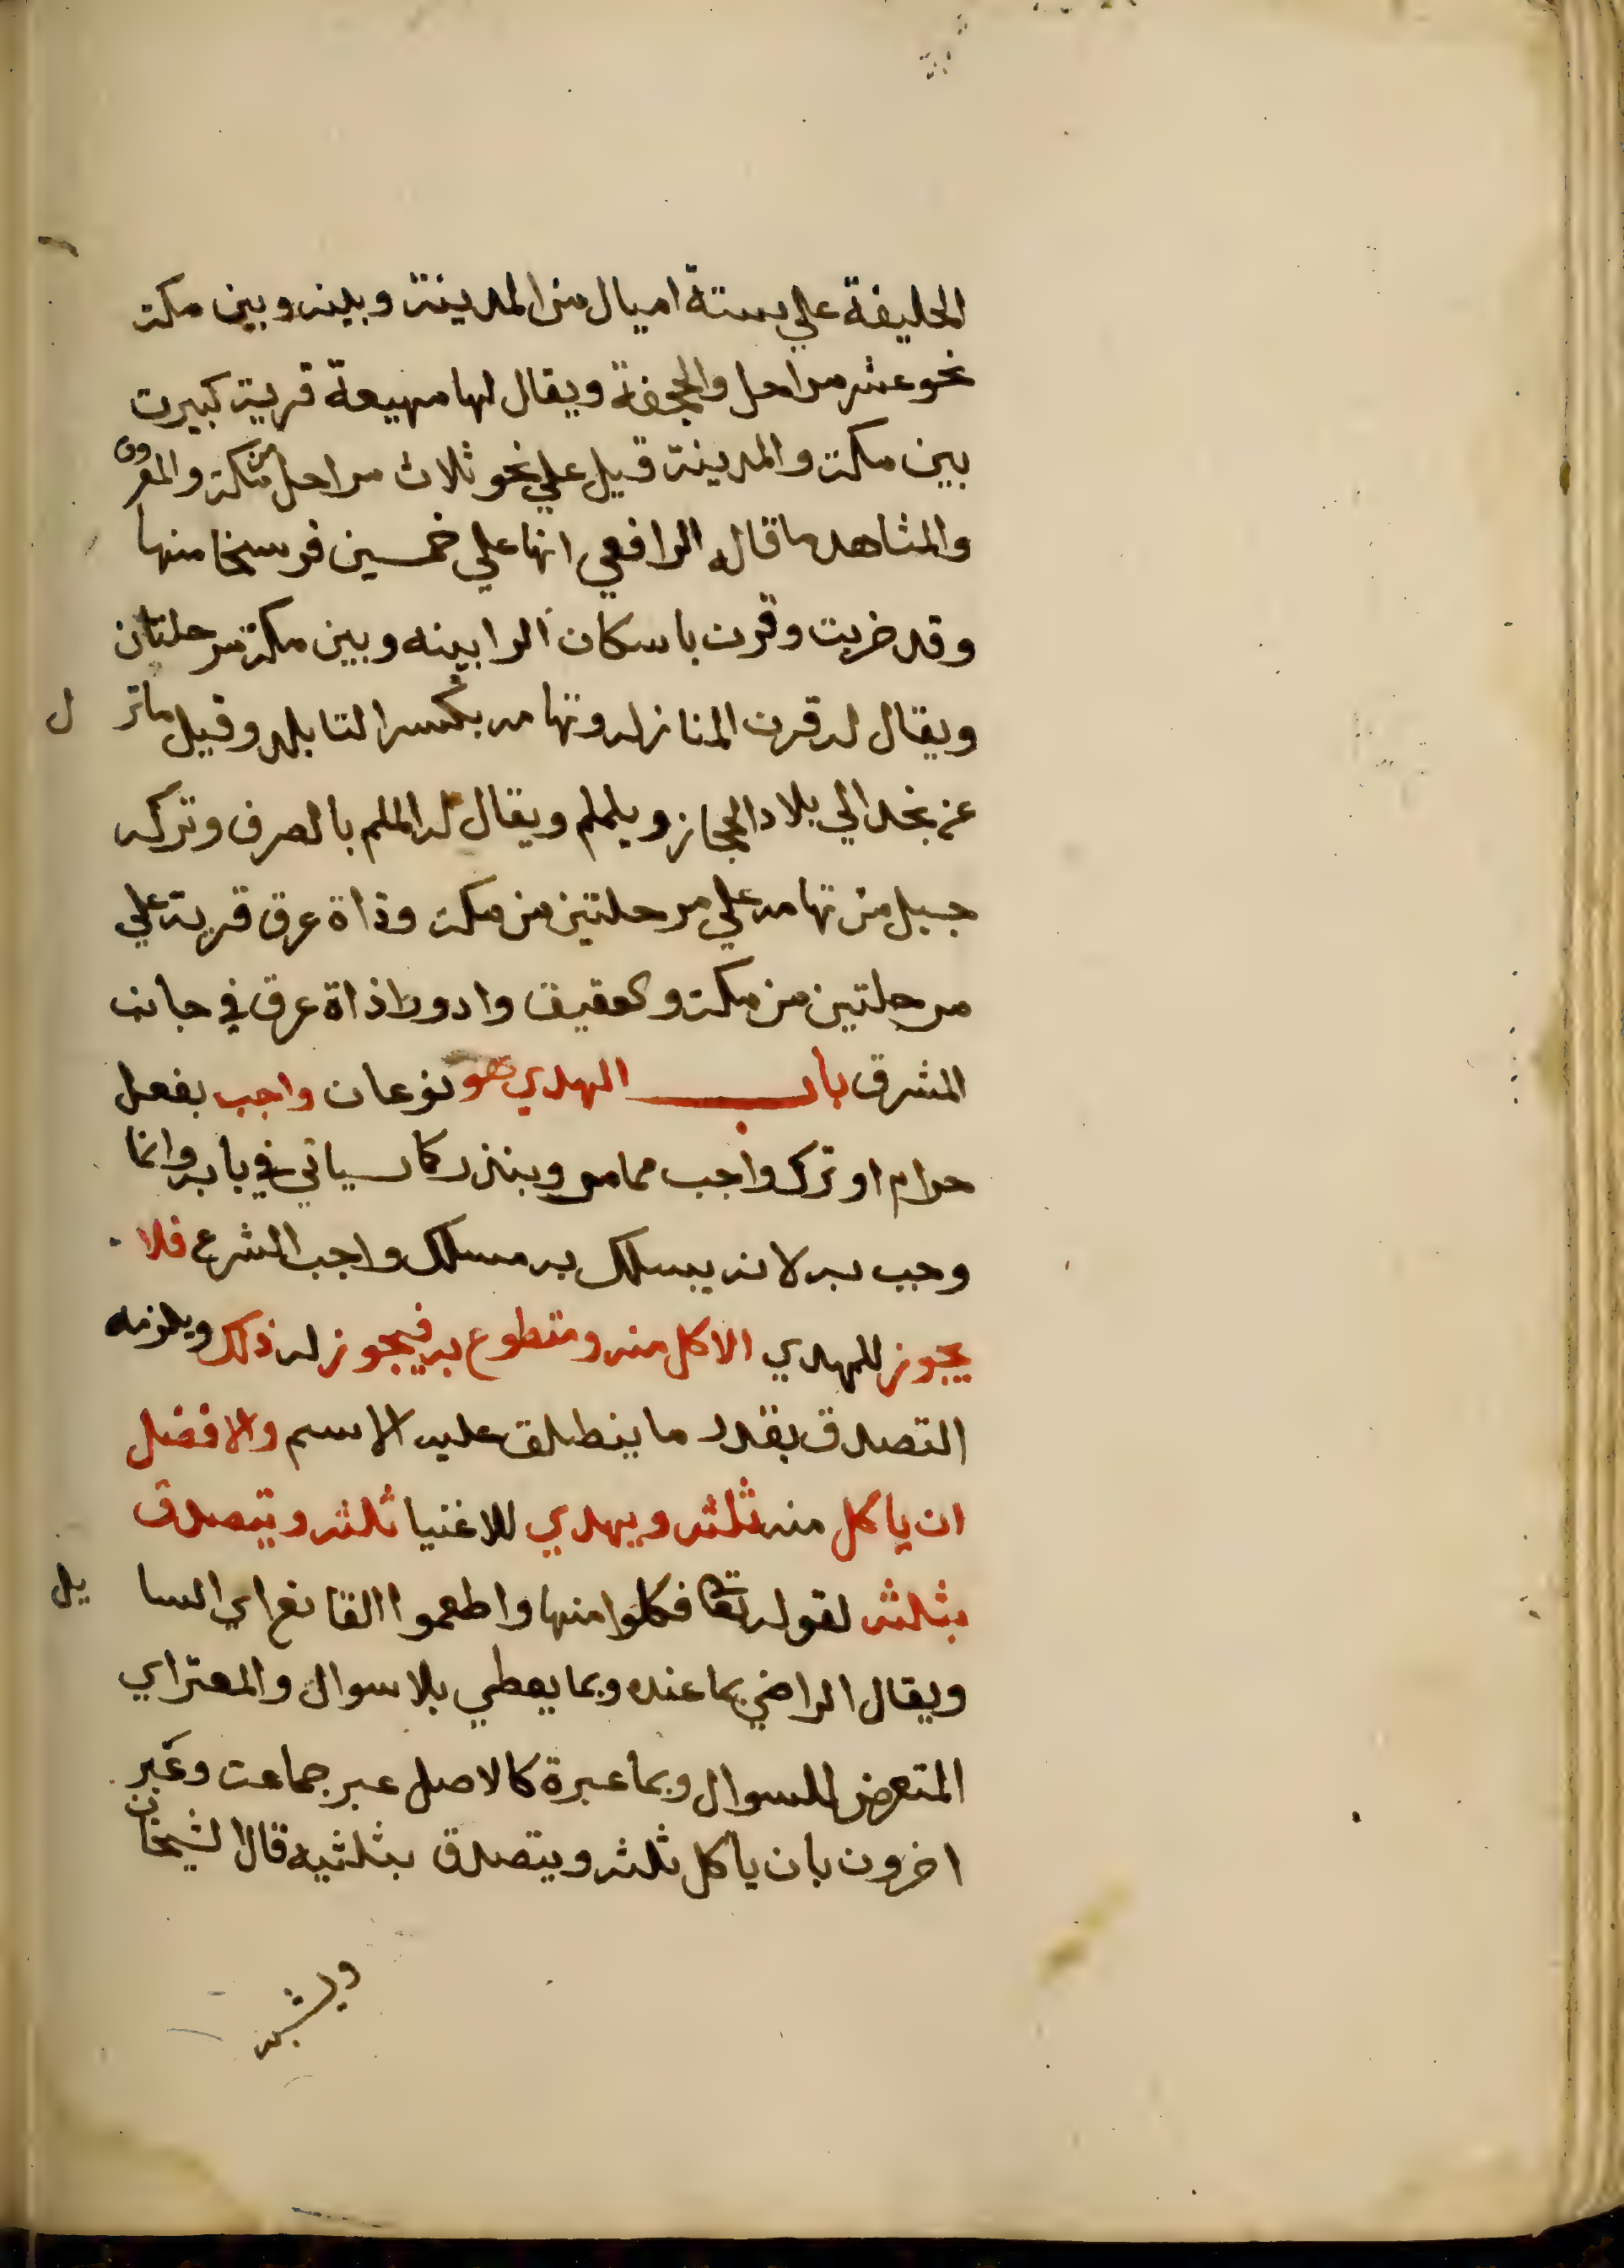 الحليفة علي ستة اميال من المدينة وبينه وبين مكة
نحو عشر مراحل والجحفة ويقال لها مهيعة قرية كبيرت
بين مكة والمدينة قيل علي نحو ثلاث مراحل من مكة والمعروف
والمشاهد ما قاله الرافعي انها علي خمسين فرسخا منها
وقد خربت وقرن باسكان الرا بينه وبين مكة مرحلتان
ويقال له قرن المنازل وتهامه بكسر التا بلد وقيل ما نزل
عن نجد الي بلاد الحجاز ويلملم ويقال له الملم بالصرف وتركه
جبل من تهامه علي مرحلتين من مكة وذاة عرق قرية علي
مرحلتين من مكة والعقيق واد ورا ذاة عرق في جانب
المشرق باب الهدي هو نوعان واجب بفعل
حرام او ترك واجب مما مر وبنذر كما سياتي في بابه وانما
وجب به لانه يسلك به مسلك واجب الشرع فلا
يجوز للمهدي الاكل منه ومتطوع به فيجوز له ذلك ويلزمه
التصدق بقدر ما ينطلق عليه الاسم والافضل
ان ياكل منه ثلثه ويهدي للاغنيا ثلثه ويتصدق
بثلثه لقوله تعا فكلوا منها واطعموا القانع اي السايل
ويقال الراضي بما عنده وبما يعطي بلا سوال والمعتر اي
المتعرض للسوال وبما عبرة كالاصل عبر جماعت وعبر
اخرون بان ياكل ثلثه ويتصدق بثلثيه قال الشيخان
ويشبه